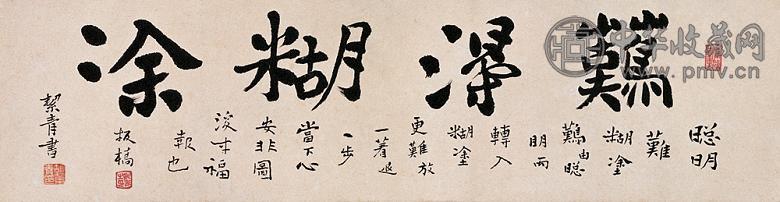 難得糊涂
聪明
難
糊塗
難由聪
明而
轉入
糊塗
更難放
一著退
一步
當下心
安非圖
後来福
報也
板橋
絜青書
中华收藏网
www.pmv.cn